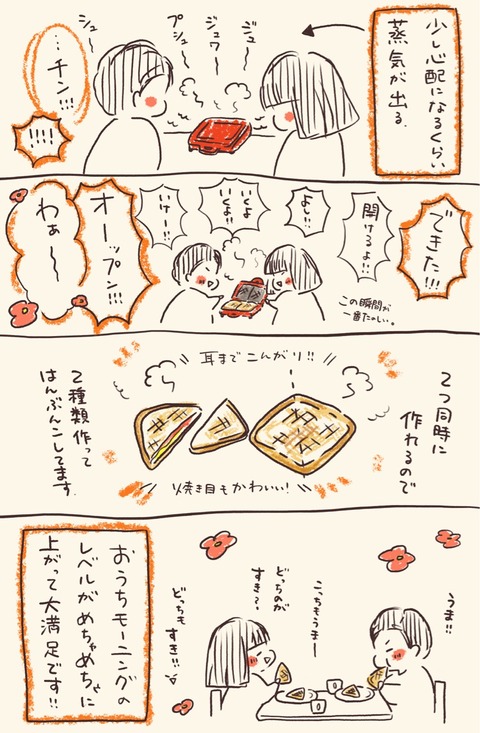 少し心配になるくらい
蒸気が出る。
ジュー
ジュワー
プシュー
シュー
…チン!!!
!!!!
できた!!!
開けるよ!!
よし!!
いくよ
いくよ!!
いけー!!
この瞬間が
一番たのしい。
オーップン!!!
わぁ〜〜
耳までこんがり!!
2つ同時に
作れるので
焼き目もかわいい!
2種類作って
はんぶんこしてます。
うま!!
こっちもうまー
どっちのが
すき?
どっちも
すき!!♡
おうちモーニングの
レベルがめちゃめちゃに
上がって大満足です!!